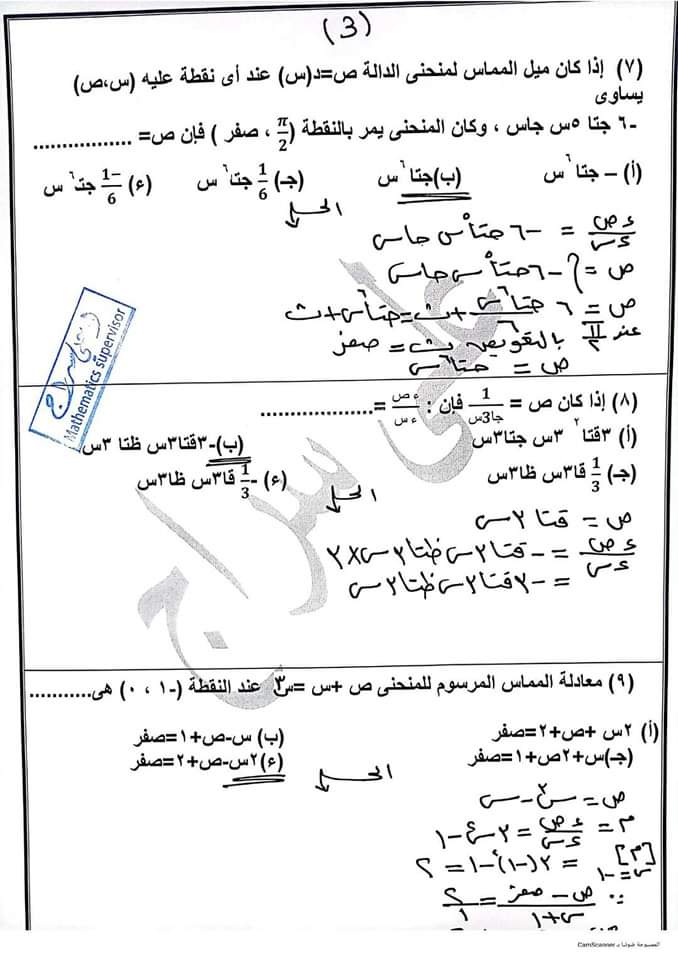 (3)
(٧) إذا كان ميل المماس لمنحنى الدالة ص=د(س) عند أى نقطة عليه (س،ص)
يساوى
-٦ جتا ٥س جاس ، وكان المنحنى يمر بالنقطة (π/2 ، صفر ) فإن ص= .................
(أ) – جتا٦ س (ب) جتا٦ س (جـ) 1/6 جتا٦ س (ء) -1/6 جتا٦ س
الحل
ءص/ءس = -٦ جتا٥س جاس
ص = ∫ -٦ جتا٥س جاس
ص = ٦ جتا٦س/٦ + ث = جتا٦س + ث
عند π/٢ بالتعويض ث = صفر
ص = جتا٦س
Mathematics supervisor
(٨) إذا كان ص = 1/جا3س فإن : ءص/ءس = ..................
(أ) ٣قتا٢ ٣س جتا٣س (ب)-٣قتا٣س ظتا ٣س
(جـ) 1/3 قا٣س ظا٣س (ء) -1/3 قا٣س ظا٣س
الحل
ص = قتا ٣س
ءص/ءس = - قتا ٣س ظتا ٣س × ٣
= -٣ قتا ٣س ظتا ٣س
(٩) معادلة المماس المرسوم للمنحنى ص +س =س٣ عند النقطة (-١ ، ٠) هى............
(أ) ٢س +ص+٢=صفر (ب) س-ص+١=صفر
(جـ)س+٢ص+١=صفر (ء)٢س-ص+٢=صفر
الحل
ص = س٣ - س
م = ءص/ءس = ٣س٢ - ١
[م] س=-١ = ٣(-١)٢ - ١ = ٢
∵ ص - صفر/س+١ = ٢/١
الممسوحة ضوئيا بـ CamScanner